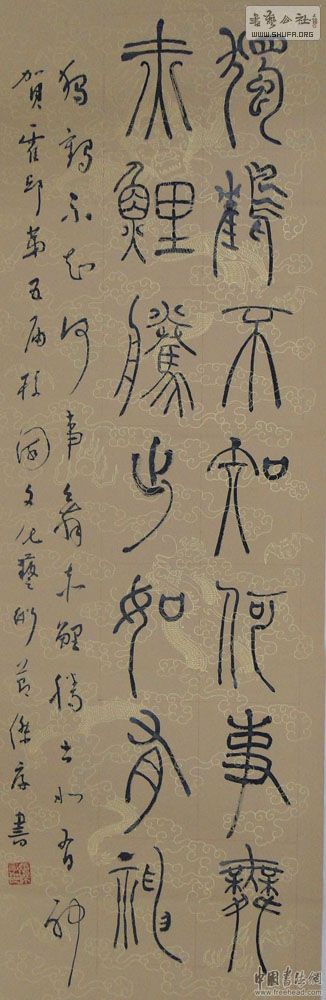 書藝公社
WWW.SHUFA.ORG
獨鶴不知何事舞
赤鯉騰出如有神
獨鶴不知何事舞赤鯉騰出如有神
賀霍邱第五屆國文化藝術節傑書
中國書法網
www.freehead.com